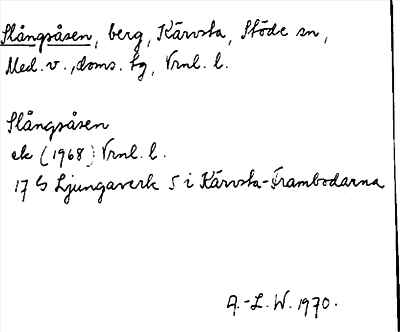 Slångsåsen, berg, Kärvsta, Stöde sn,
Med. v., doms. tg, Vrnl. l.
Slångsåsen
ek (1968) Vrnl. l.
17 G Ljungaverk 5 i Kärvsta-Frambodarna
A.-L. W. 1970.